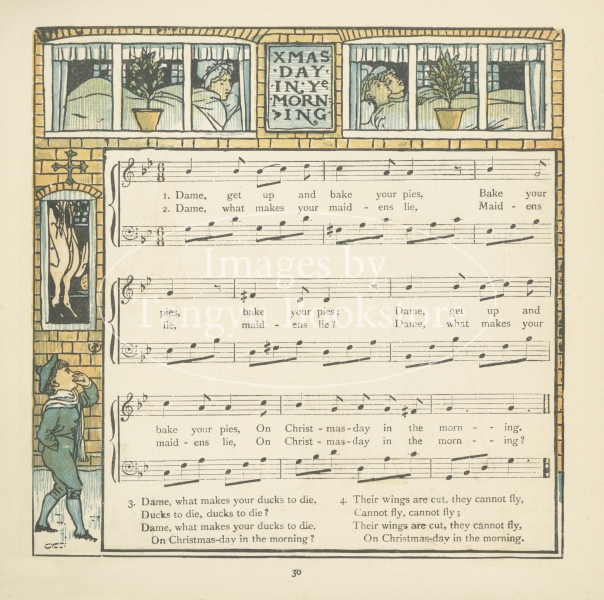 XMAS
DAY
IN Yᵉ
MORN
ING
1. Dame, get up and bake your pies, Bake your
2. Dame, what makes your maid - ens lie, Maid - ens
pies, bake your pies; Dame, get up and
lie, maid - ens lie? Dame, what makes your
bake your pies, On Christ - mas-day in the morn - - ing.
maid - ens lie, On Christ - mas-day in the morn - - ing?
3. Dame, what makes your ducks to die,
Ducks to die, ducks to die?
Dame, what makes your ducks to die,
On Christmas-day in the morning?
4. Their wings are cut, they cannot fly,
Cannot fly, cannot fly;
Their wings are cut, they cannot fly,
On Christmas-day in the morning.
30
Images by